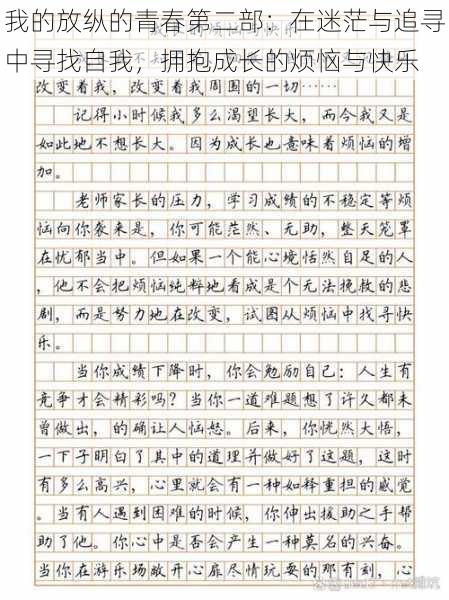 我的放纵的青春第二部：在迷茫与追寻
中寻找自我，拥抱成长的烦恼与快乐
改变着我，改变着我周围的一切……
记得小时候我多么渴望长大，而今我又是
如此地不想长大。因为成长也意味着烦恼的增
加。
老师家长的压力，学习成绩的不稳定等烦
恼向你袭来是，你可能茫然、无助，整天笼罩
在忧郁当中。但如果一个能心境恬然自足的人
，他不会把烦恼纯粹地看成是个无法挽救的悲
剧，而是努力地在改变，试图从烦恼中找寻快
乐。
当你成绩下降时，你会勉励自己：人生有
竞争才会精彩吗？当你一道难题想了许久都未
曾做出，的确让人恼怒。后来，你恍然大悟，
一下子明白了其中的道理并做好了这题，这时
有多么高兴，心里就会有一种如释重担的感觉
。当有人遇到困难的时候，你伸出援助之手帮
助了他。你心中是否会产生一种莫名的兴奋。
当你在游乐场敞开心扉尽情玩耍的那有刻，心